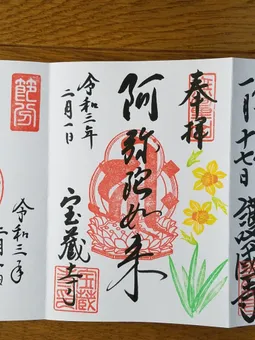 一月十七日 護国寺
奉拝
阿弥陀如来
令和三年
二月一日
宝蔵寺
宝蔵
節分
令和三年
二月